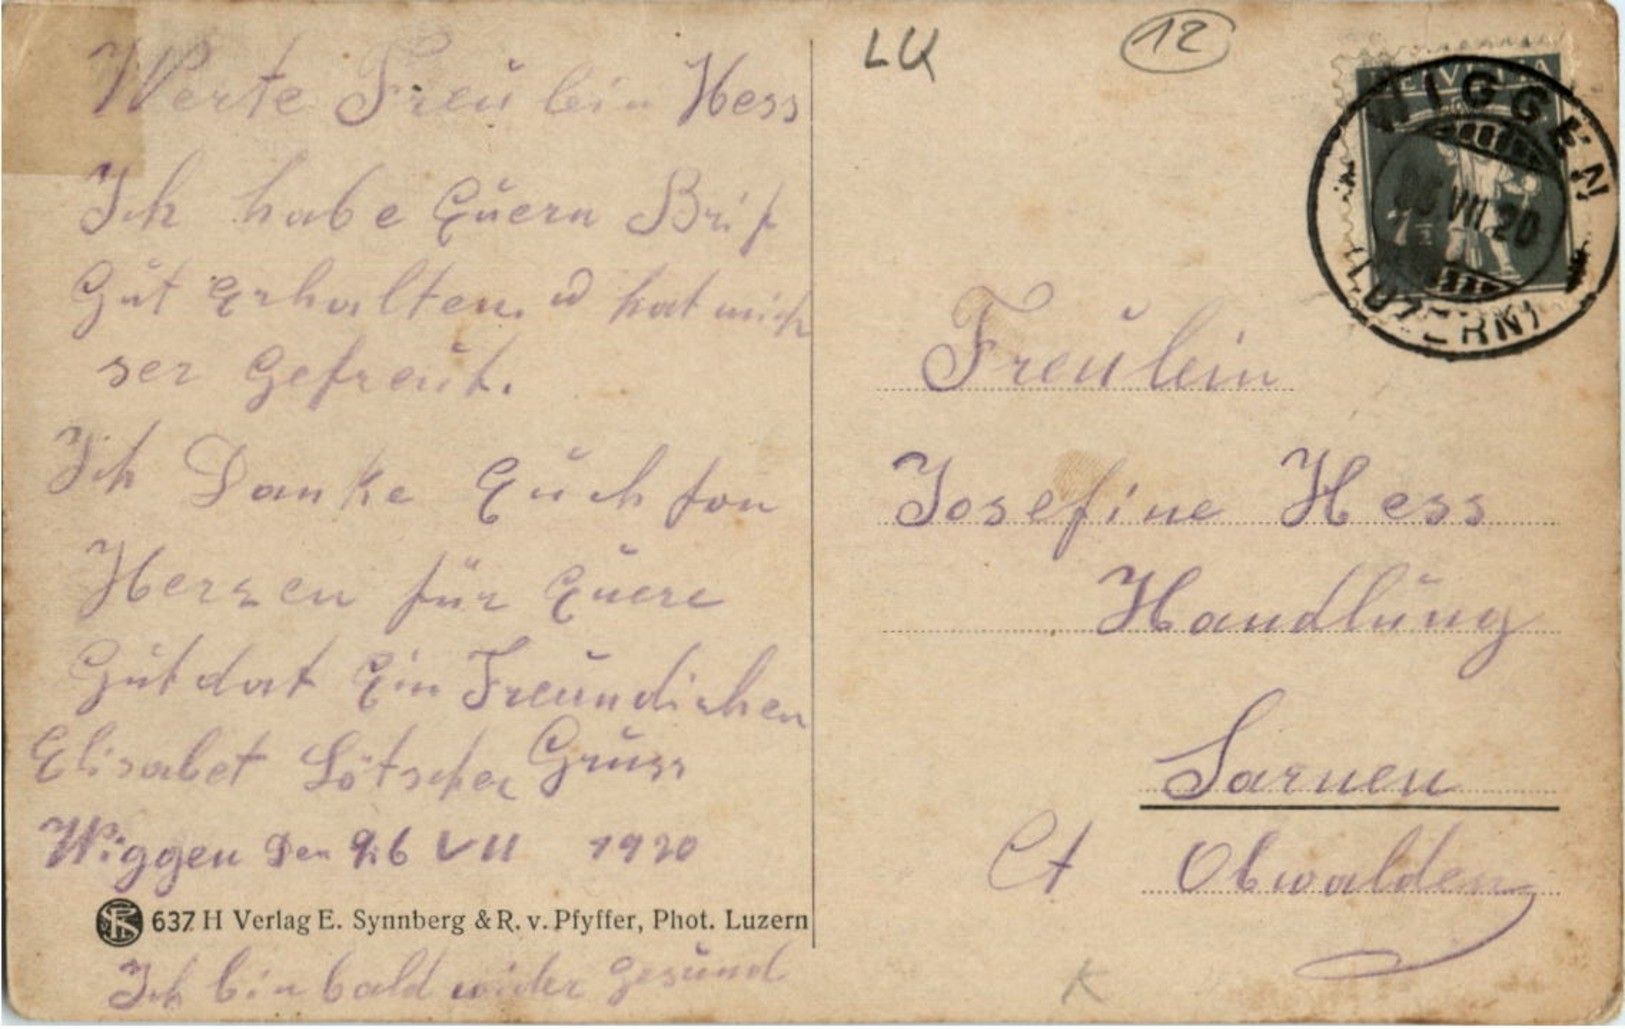 Werte Freulein Hess
Ich habe Euern Brif
Gut Erhalten. u hat mich
ser Gefreut.
Ich Danke Euch fon
Herzen für Euere
Gutdat Ein Freundichen
Elisabet Lötscher Gruss
Wiggen Den 26 VII 1920
637 H Verlag E. Synnberg & R. v. Pfyffer, Phot. Luzern
Ich bin bald wider gesund
LU
12
HELVETIA
7½
WIGGEN
VII 20
(LUZERN)
Freulein
Josefine Hess
Handlung
Sarnen
Ct Obwalden
K